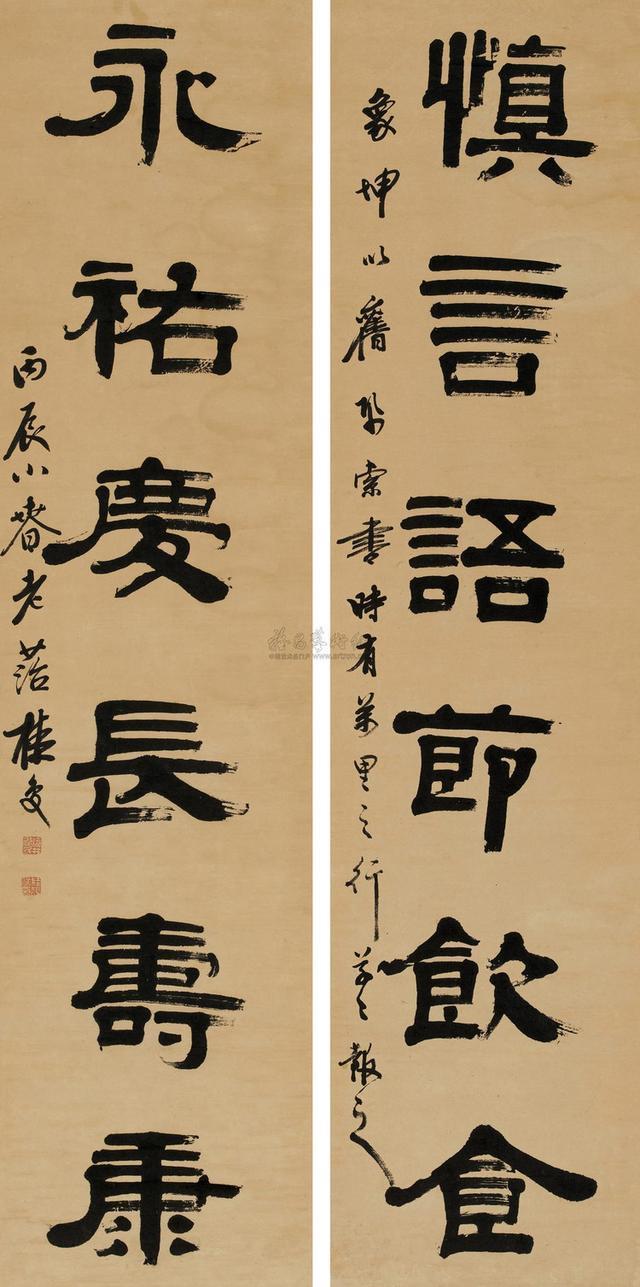 慎言語節飲食
象坤以舊帋索書時有萬里之行草〻報之
永祐慶長壽康
丙辰小春老菭桂馥